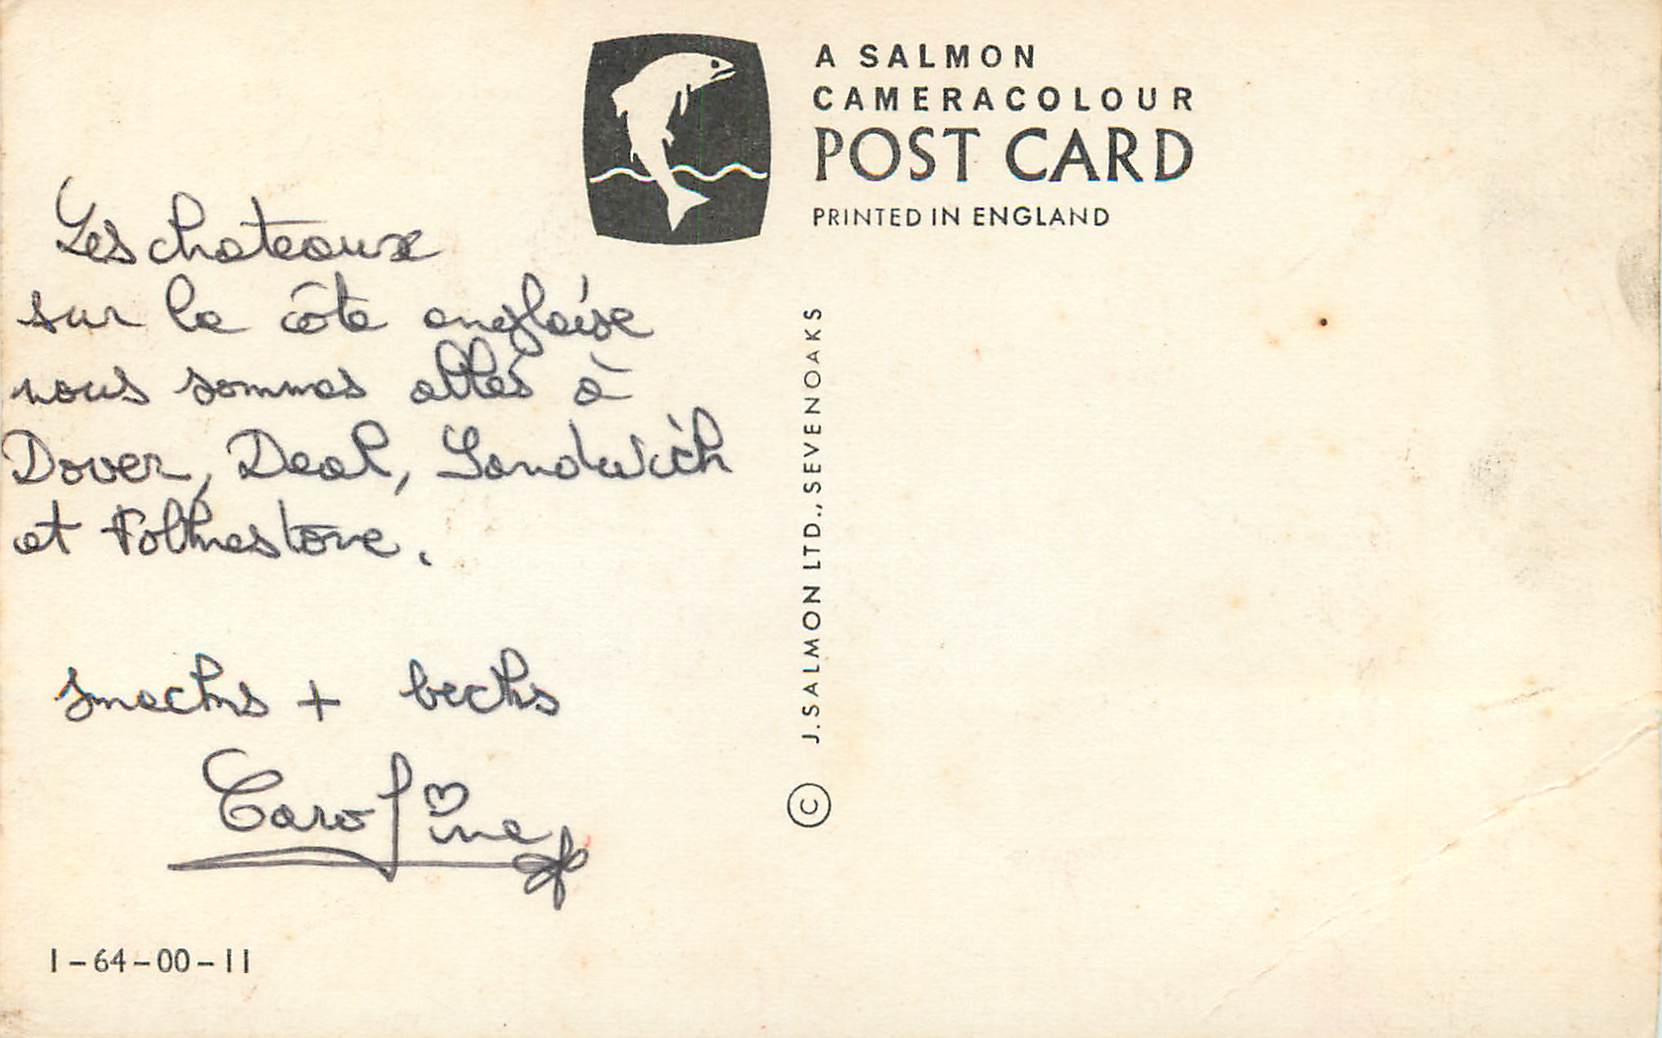 A SALMON
CAMERACOLOUR
POST CARD
PRINTED IN ENGLAND
Les chateaux
sur la côte anglaise
nous sommes allés à
Dover, Deal, Sandwich
et Folkestone.
smacks + becks
Caroline
1-64-00-11
© J. SALMON LTD., SEVENOAKS